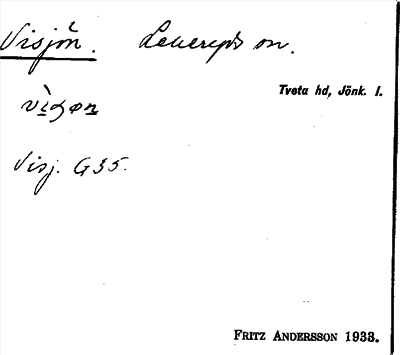 Visjön. Lekeryds sn.
Tveta hd, Jönk. l.
Visj. G35.
FRITZ ANDERSSON 1933.